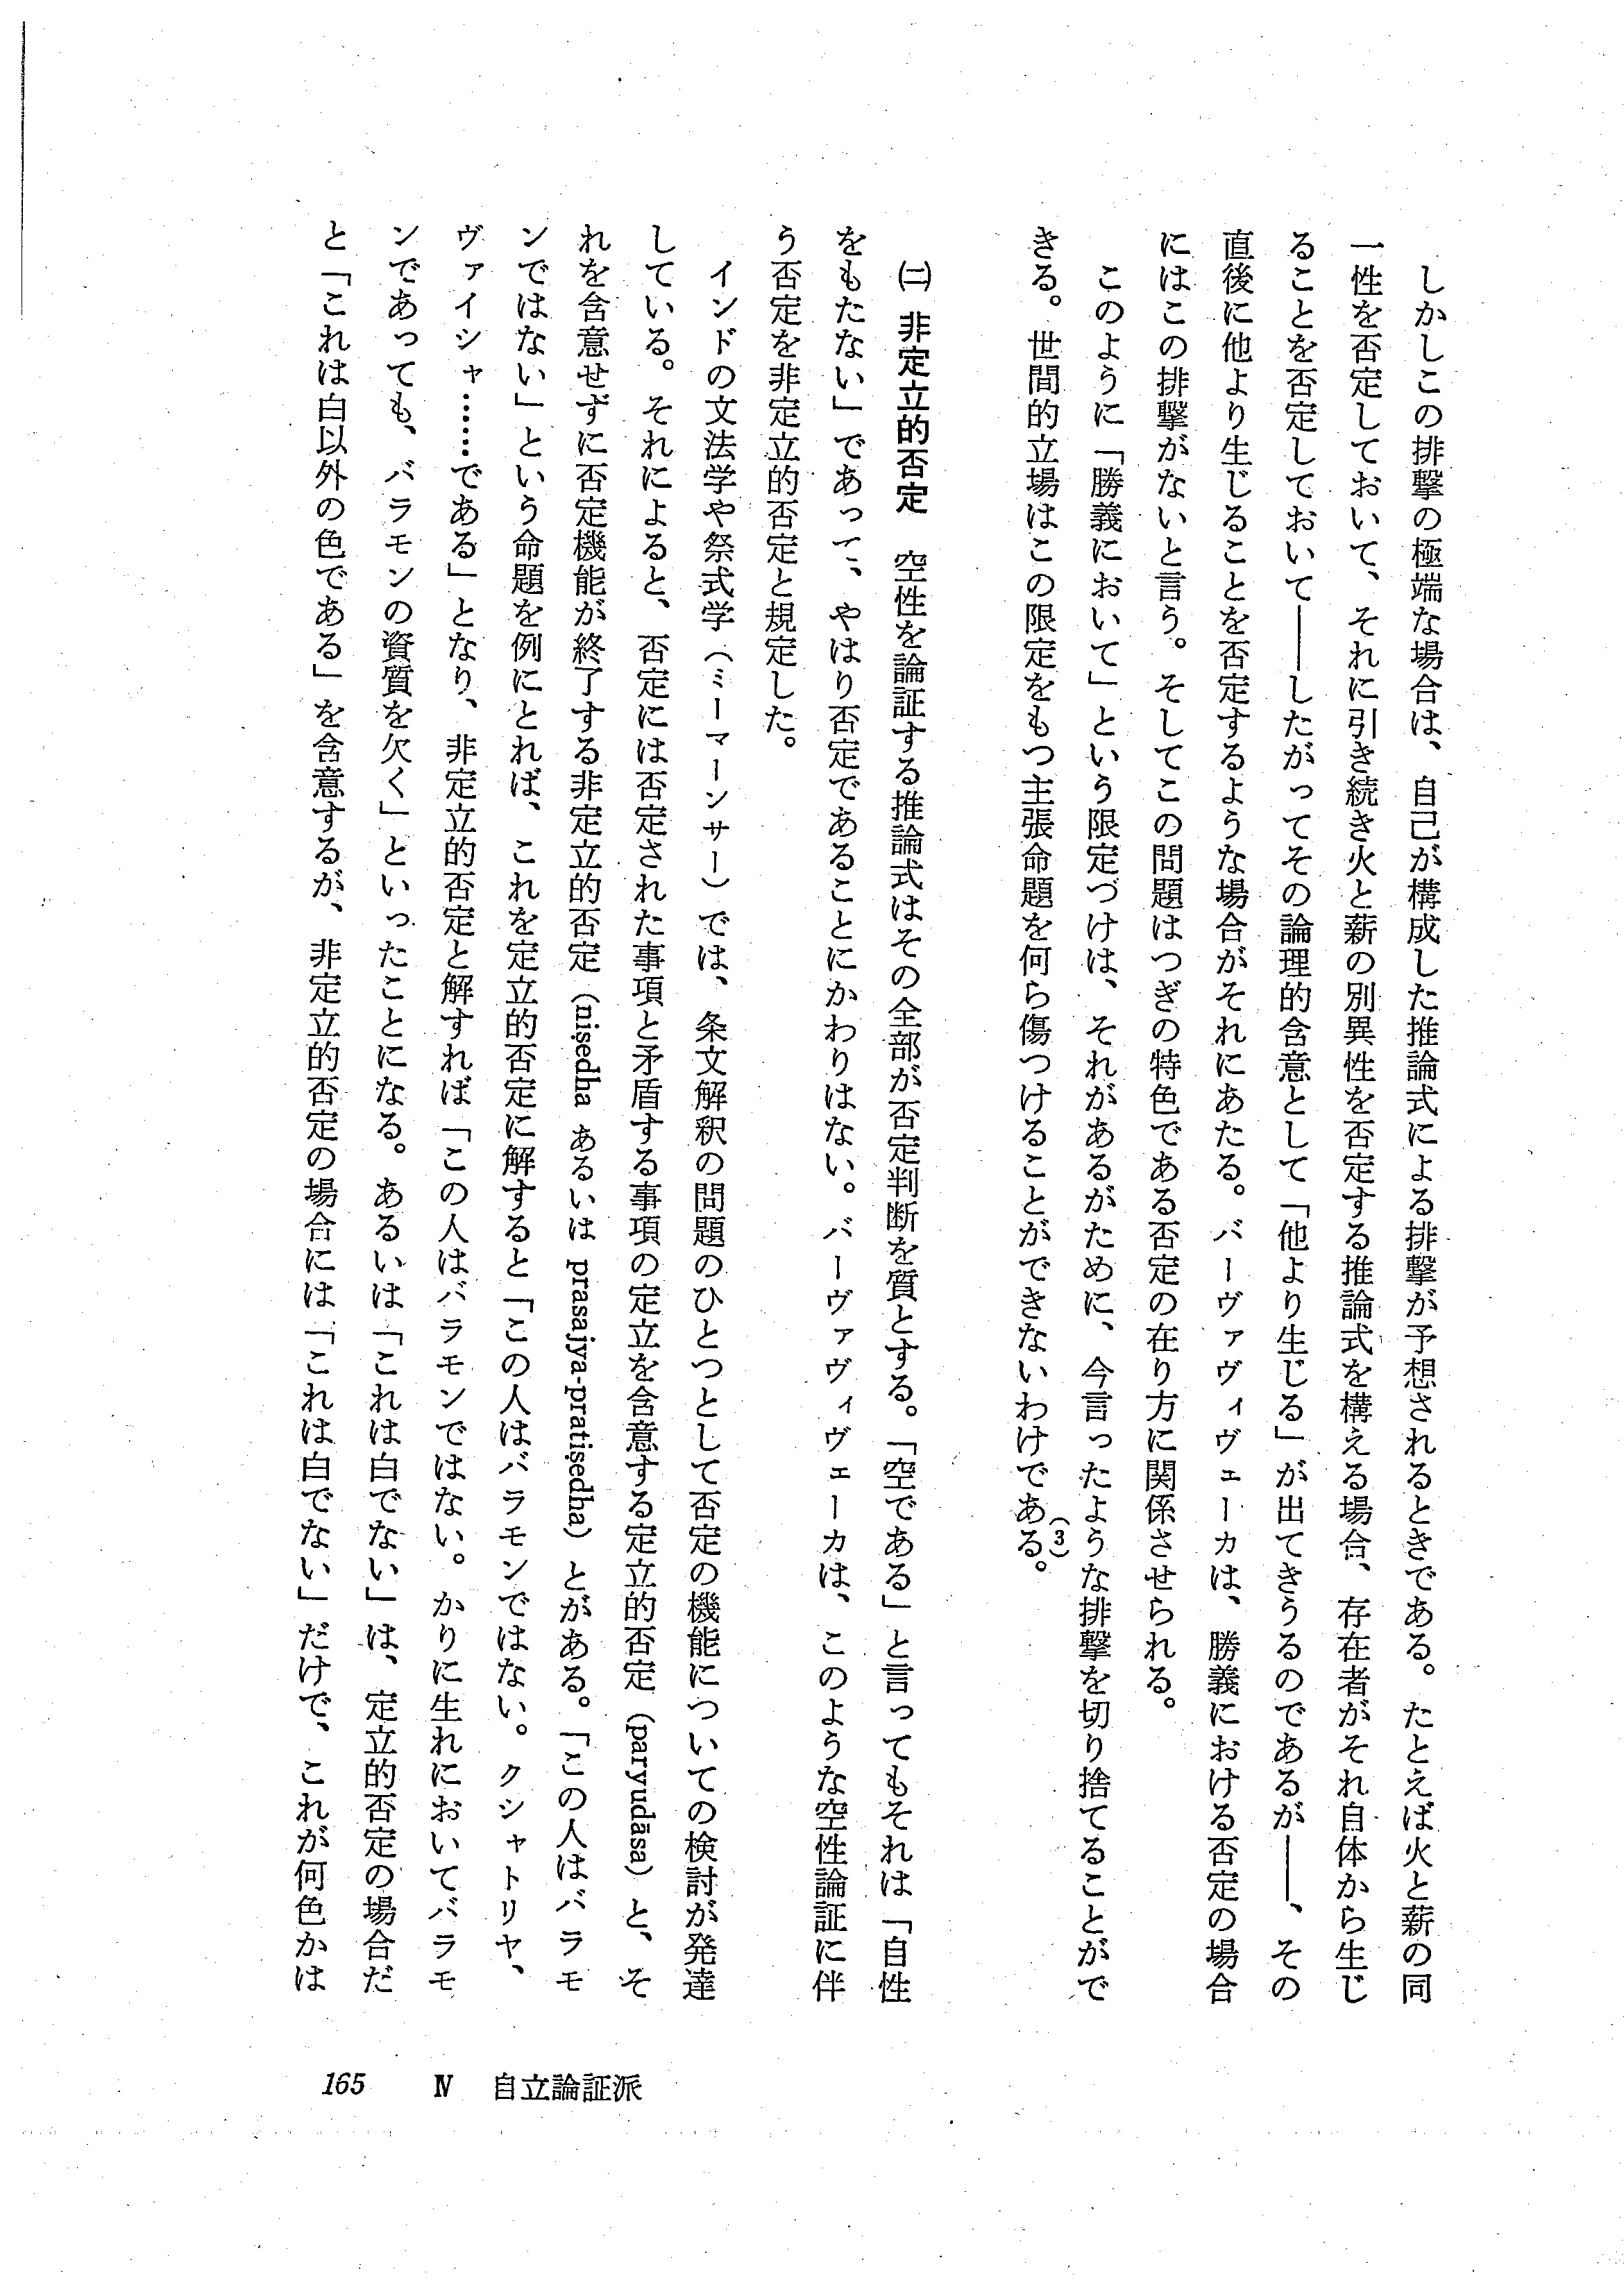 しかしこの排撃の極端な場合は、自己が構成した推論式による排撃が予想されるときである。たとえば火と薪の同
一性を否定しておいて、それに引き続き火と薪の別異性を否定する推論式を構える場合、存在者がそれ自体から生じ
ることを否定しておいて――したがってその論理的含意として「他より生じる」が出てきうるのであるが――、その
直後に他より生じることを否定するような場合がそれにあたる。バーヴァヴィヴェーカは、勝義における否定の場合
にはこの排撃がないと言う。そしてこの問題はつぎの特色である否定の在り方に関係させられる。
このように「勝義において」という限定づけは、それがあるがために、今言ったような排撃を切り捨てることがで
きる。世間的立場はこの限定をもつ主張命題を何ら傷つけることができないわけである。(3)
㈡ 非定立的否定　空性を論証する推論式はその全部が否定判断を質とする。「空である」と言ってもそれは「自性
をもたない」であって、やはり否定であることにかわりはない。バーヴァヴィヴェーカは、このような空性論証に伴
う否定を非定立的否定と規定した。
インドの文法学や祭式学（ミーマーンサー）では、条文解釈の問題のひとつとして否定の機能についての検討が発達
している。それによると、否定には否定された事項と矛盾する事項の定立を含意する定立的否定（paryudāsa）と、そ
れを含意せずに否定機能が終了する非定立的否定（niṣedha あるいは prasajya-pratiṣedha）とがある。「この人はバラモ
ンではない」という命題を例にとれば、これを定立的否定に解すると「この人はバラモンではない。クシャトリヤ、
ヴァイシャ……である」となり、非定立的否定と解すれば「この人はバラモンではない。かりに生れにおいてバラモ
ンであっても、バラモンの資質を欠く」といったことになる。あるいは「これは白でない」は、定立的否定の場合だ
と「これは白以外の色である」を含意するが、非定立的否定の場合には「これは白でない」だけで、これが何色かは
165　Ⅳ　自立論証派